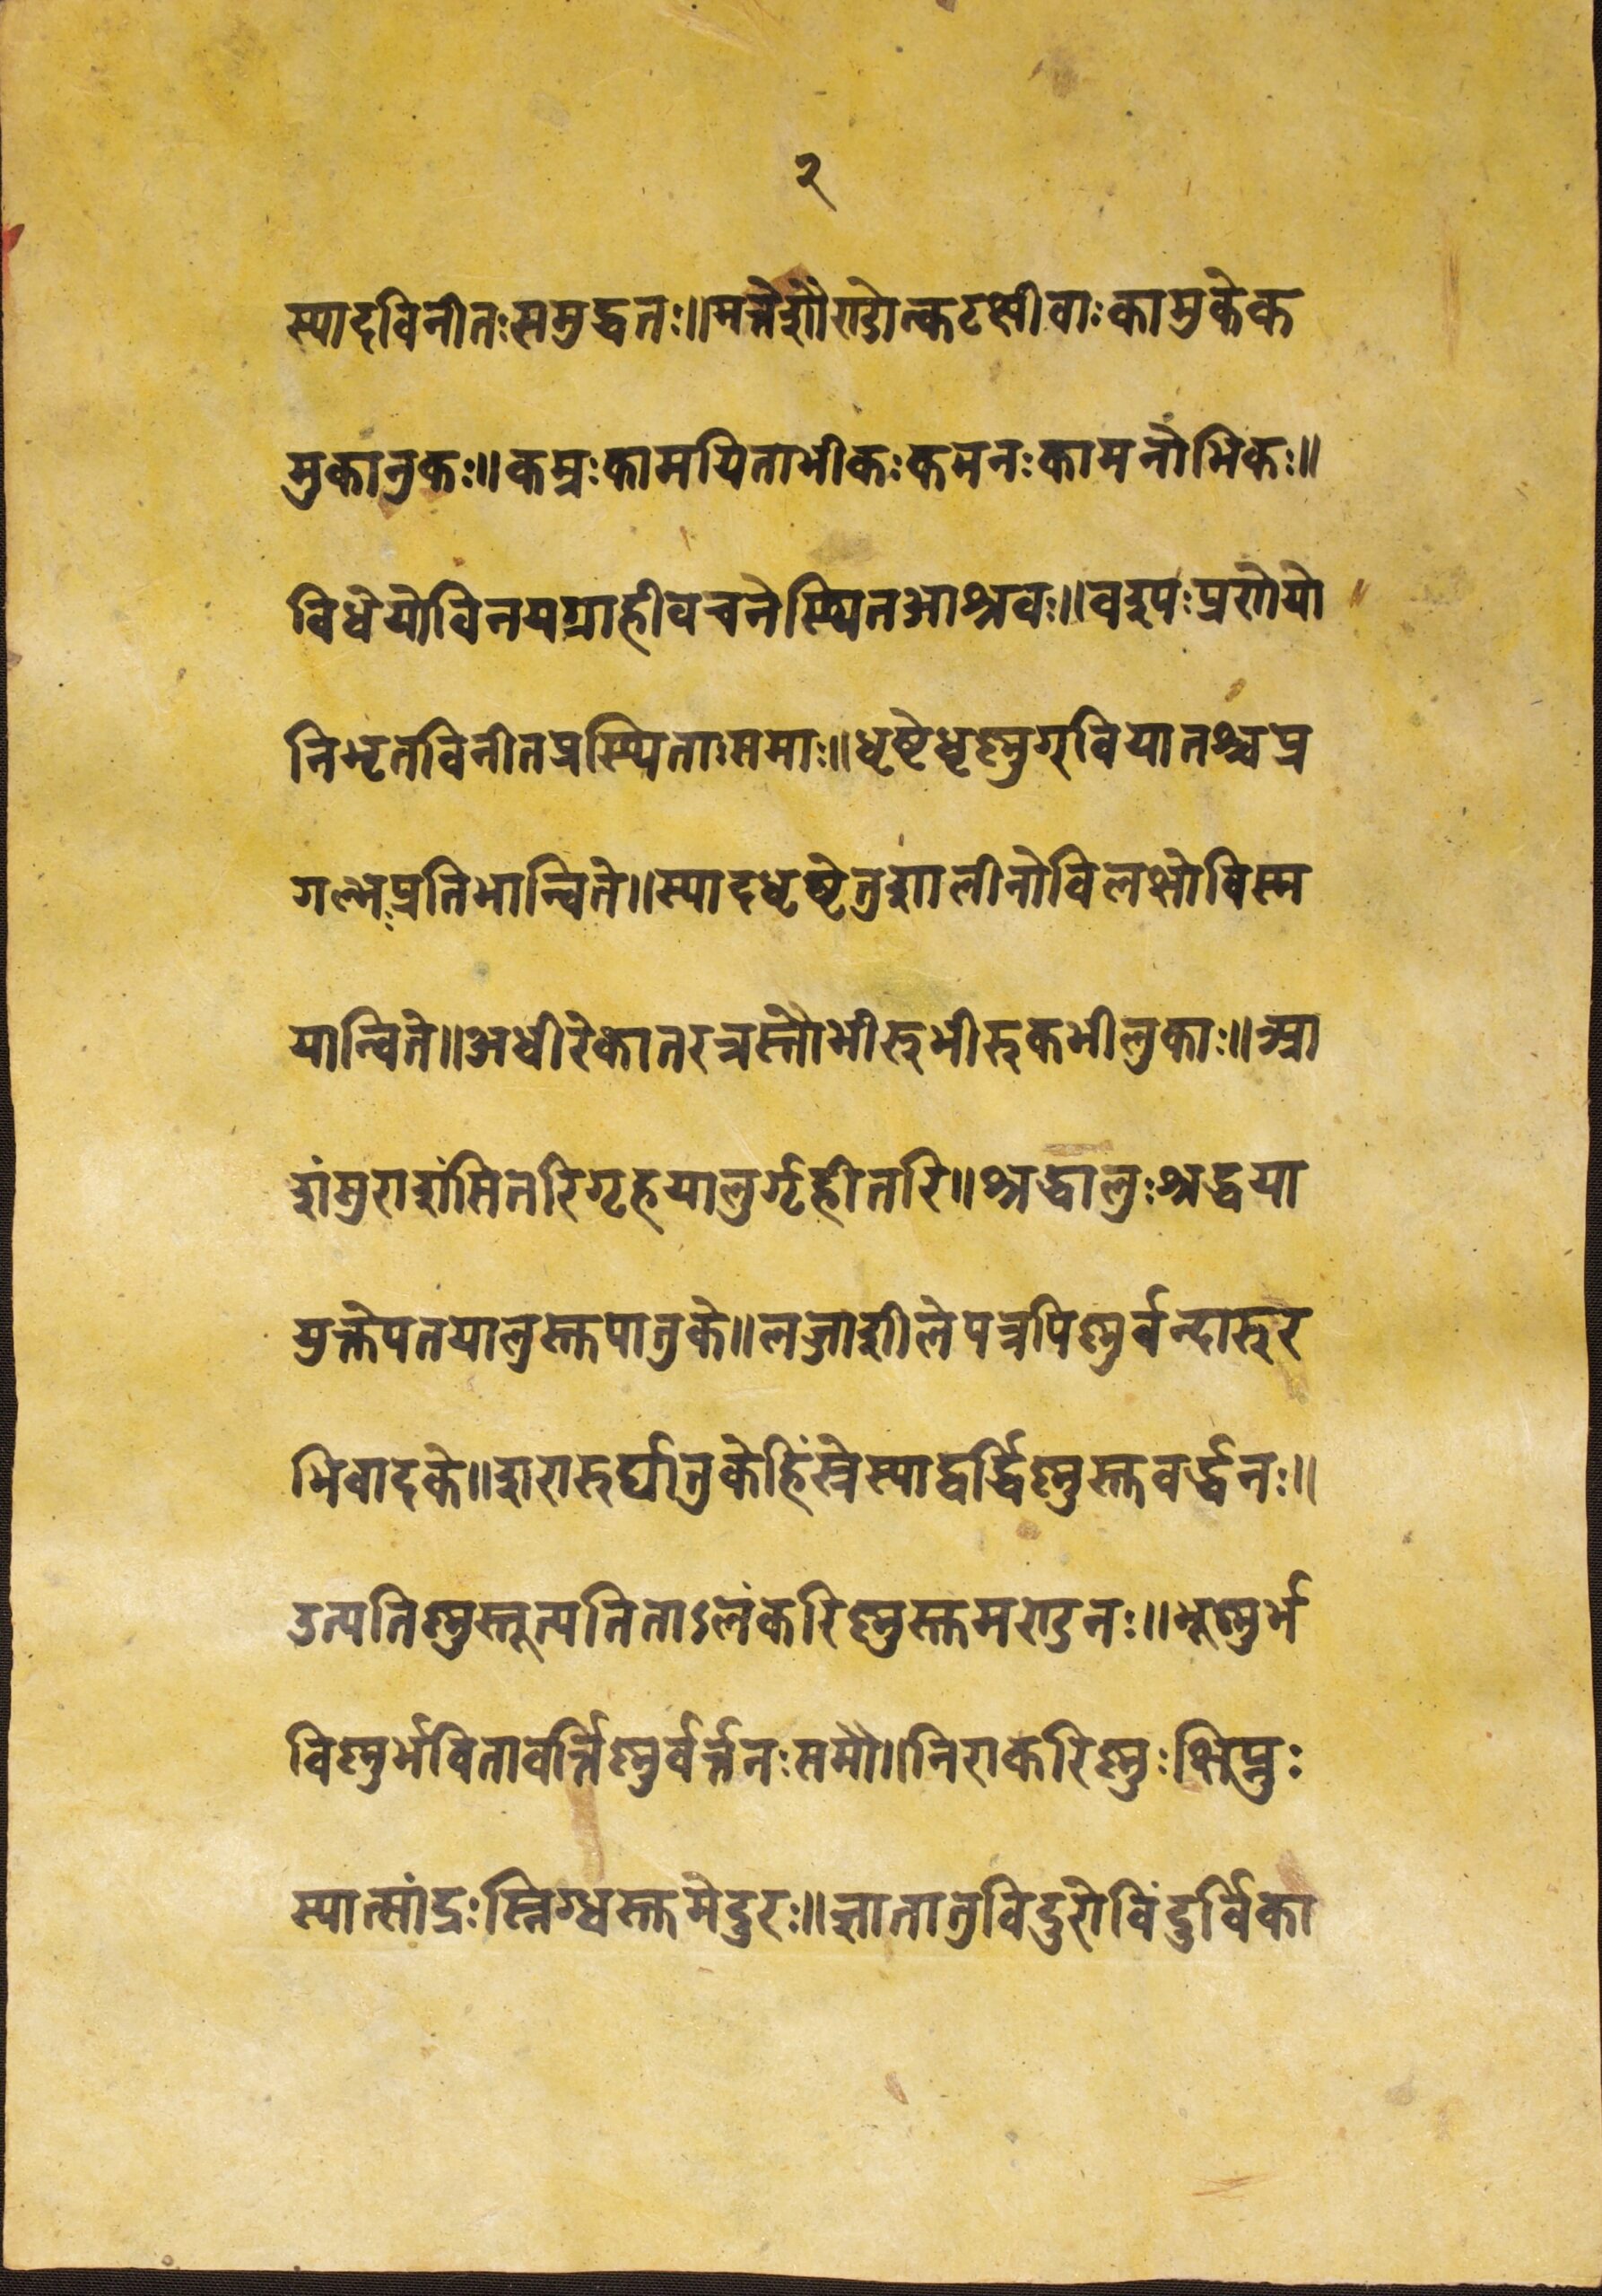 २
स्यादविनीतःसमुद्धतः॥मत्तेशौण्डोत्कटक्षीवाःकामुकेक
मुकानुकः॥कम्रःकामयिताभीकःकमनःकामनोभिकः॥
विधेयोविनयग्राहीवचनेस्थितआश्रवः॥वश्यःप्रणेयो
निभृतविनीतप्रस्थिताःसमाः॥धृष्टेधृष्णुग्वियातश्चप्र
गल्भःप्रतिभान्विते॥स्यादधृष्टेतुशालीनोविलक्षोविस्म
यान्विते॥अधीरेकातरत्रस्तौभीरुभीरुकभीलुकाः॥आ
शंसुराशंसितरिगृहयालुर्गृहीतरि॥श्रद्धालुःश्रद्धया
युक्तेपतयालुस्तुपातुके॥लज्जाशीलेपत्रपिष्णुर्वन्दारुर
भिवादके॥शरारुर्घातुकेहिंस्रेस्याद्वर्द्धिष्णुस्तुवर्द्धनः॥
उत्पतिष्णुस्तूत्पतिताऽलंकरिष्णुस्तुमण्डनः॥भूष्णुर्भ
विष्णुर्भवितावर्त्तिष्णुर्वर्त्तनःसमौ॥निराकरिष्णुःक्षिप्नुः
स्यात्सांद्रःस्निग्धस्तुमेदुरः॥ज्ञातातुविदुरोविंदुर्विका